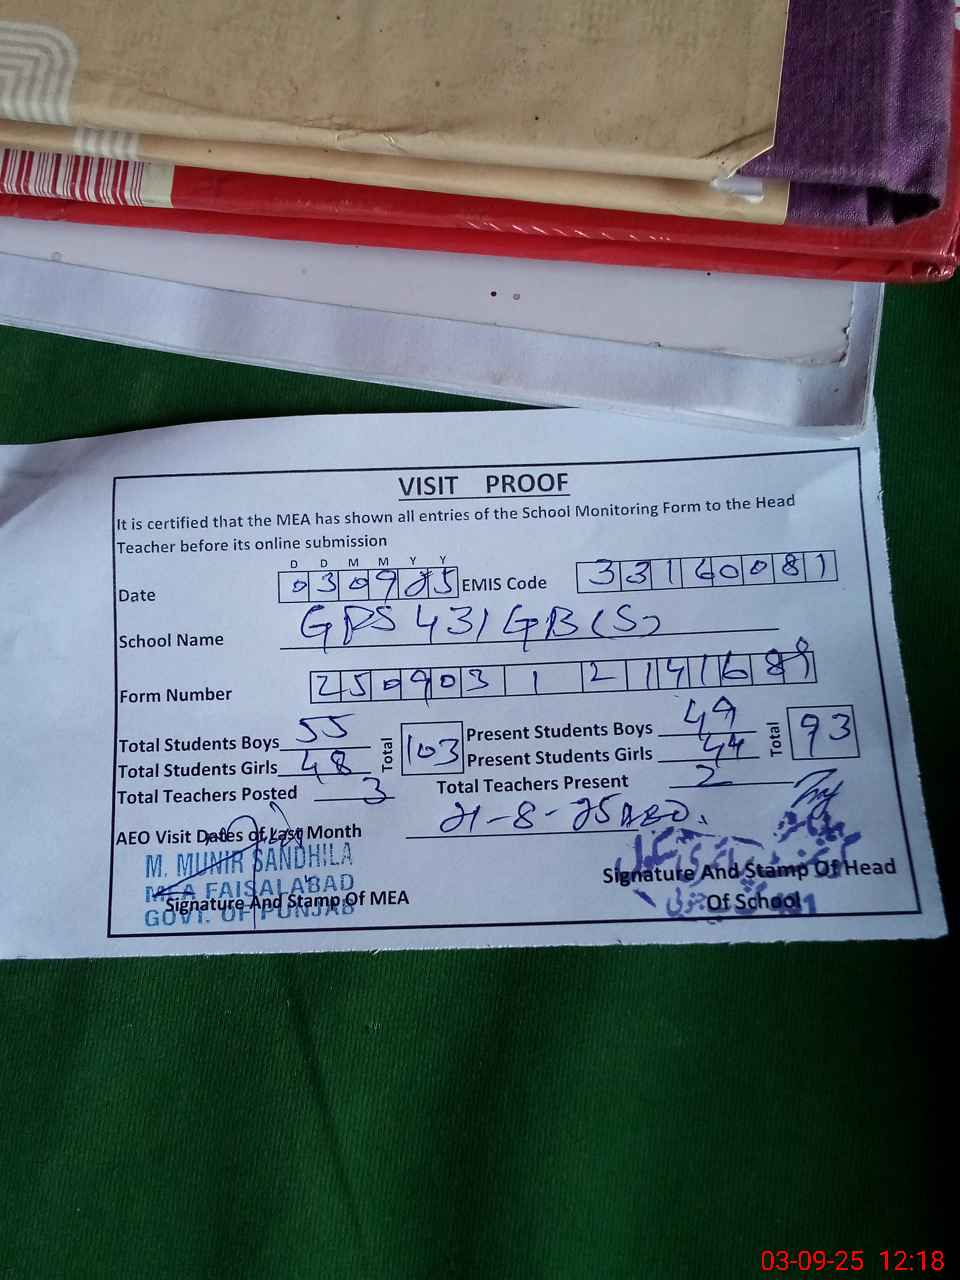 VISIT PROOF
It is certified that the MEA has shown all entries of the School Monitoring Form to the Head
Teacher before its online submission
D D M M Y Y
Date 030925 EMIS Code 33160081
School Name GPS 431 GB (S)
Form Number 250903 1 2 141689
Total Students Boys 55 Total 103 Present Students Boys 49 Total 93
Total Students Girls 48 Present Students Girls 44
Total Teachers Posted 3 Total Teachers Present 2
AEO Visit Dates of Last Month 21-8-25
M. MUNIR SANDHILA
MEA FAISALABAD
GOVT. OF PUNJAB
Signature And Stamp Of MEA
Signature And Stamp Of Head
Of School
431
03-09-25 12:18